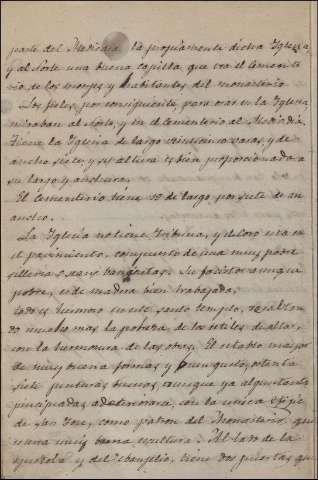 parte del Mediodia la propiamente dicha Iglesia,
y al Norte una buena capilla que era el Cemente
rio de los monjes y habitantes del monasterio.
Los fieles, por consiguiente, para orar en la Iglesia
miraban al Norte, y en el Cementerio al Mediodia.
Tiene la Iglesia de largo veinticinco varas, y de
ancho siete, y su altura es bien proporcionada a
su largo y anchura.
El Cementerio tiene 12 de largo por siete de an
ancho.
La Iglesia no tiene Tribuna, y el coro esta en
el pavimento, compuesto de una muy pobre
silleria o sean banquetas. Su facistol aunque
pobre, es de madera bien trabajada.
Todo es hermoso en este santo templo, resaltan
do mucho mas la pobreza de los utiles de altar,
con la hermosura de las obras. El retablo mayor
de muy buena forma y gusto, ostenta
siete pinturas buenas, aunque ya algun tanto
principiadas a deteriorarse, con la unica efigie
de San Jose, como patron del Monasterio, que
es una muy buena escultura. Al lado de la
epistola y del Evangelio, tiene dos puertas que